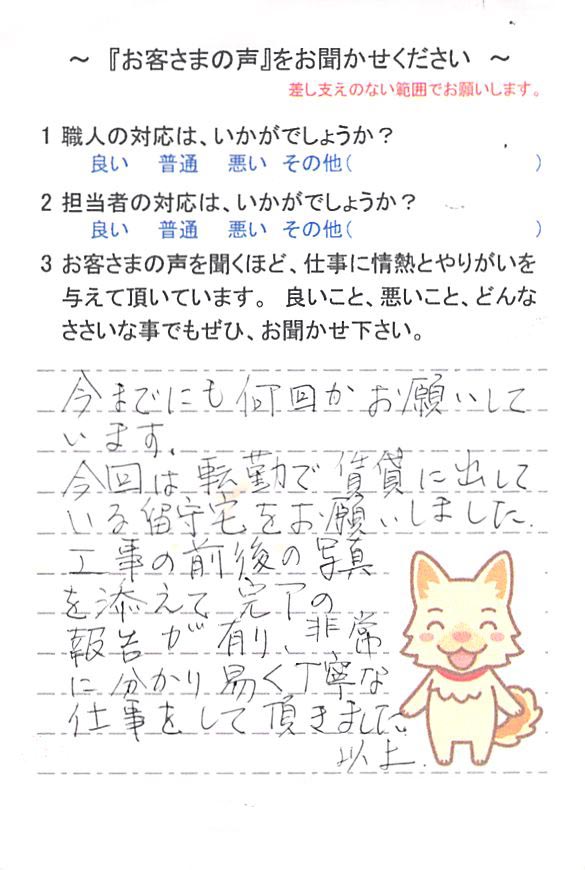 ～ 『お客さまの声』をお聞かせください ～
差し支えのない範囲でお願いします。
1 職人の対応は、いかがでしょうか？
良い 普通 悪い その他( )
2 担当者の対応は、いかがでしょうか？
良い 普通 悪い その他( )
3 お客さまの声を聞くほど、仕事に情熱とやりがいを
与えて頂いています。 良いこと、悪いこと、どんな
ささいな事でもぜひ、お聞かせ下さい。
今までにも何回かお願いして
います。
今回は転勤で賃貸に出して
いる留守宅をお願いしました.
工事の前後の写真
を添えて完了の
報告が有り、非常
に分かり易く丁寧な
仕事をして頂きました。
以上.